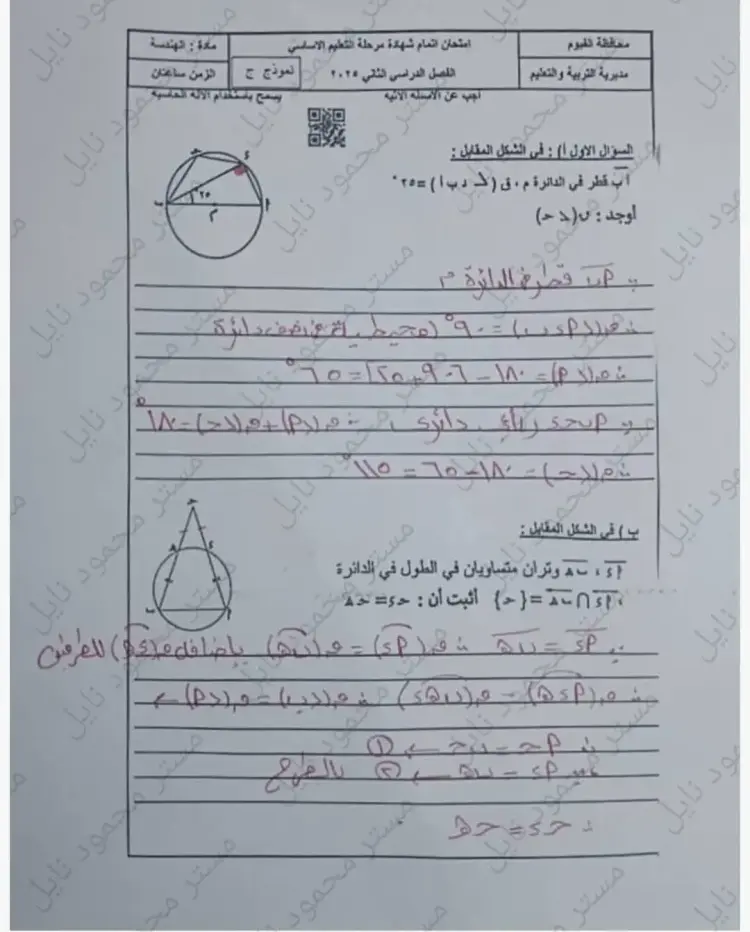 محافظة الفيوم
امتحان اتمام شهادة مرحلة التعليم الاساسي
مادة : الهندسة
مديرية التربية والتعليم
الفصل الدراسي الثاني ٢٠٢٥
نموذج ج
الزمن ساعتان
اجب عن الاسئله الاتيه
يسمح باستخدام الاله الحاسبه
السؤال الاول أ) : في الشكل المقابل :
أب قطر في الدائرة م ، ق (∠ د ب ا ) = ٢٥°
أوجد : ق(∠ ح)
ح
ء
٢٥°
ب
م
أ
∵ أب قطر في الدائرة م
∴ ق(∠ أ ء ب) = ٩٠° (محيطية في نصف دائرة
∴ ق(∠ أ) = ١٨٠ - (٩٠ + ٢٥) = ٦٥°
∵ أ ب ح ء رباعي دائري ∴ ق(∠ أ) + ق(∠ ح) = ١٨٠°
∴ ق(∠ ح) = ١٨٠ - ٦٥ = ١١٥°
ب ) في الشكل المقابل :
أء ، ب ه وتران متساويان في الطول في الدائرة
، أء ∩ ب ه = {ح} أثبت أن : ح ء = ح ه
ح
ه
ء
ب
أ
∵ أء = ب ه ∴ ق(أء) = ق(ب ه) بإضافة ق(ء ه) للطرفين
∴ ق(أ ء ه) = ق(ب ه ء) ∴ ق(∠ ب) = ق(∠ أ) ←
∴ أ ح = ب ح ← (١)
∵ أء = ب ه ← (٢) بالطرح
∴ ح ء = ح ه
مستر محمود نايل